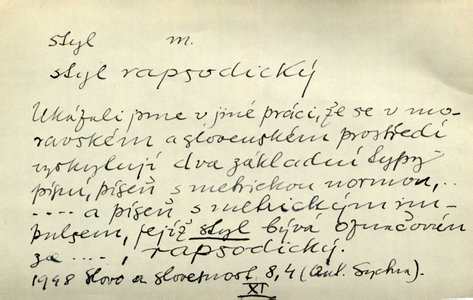 styl m.
styl rapsodický
Ukázali jsme v jiné práci, že se v mo-
ravském a slovenském prostředí
vyskytují dva základní typy
písní, píseň s metrickou normou, ..
.... a píseň s metrickým im-
pulsem, jejíž styl bývá označován
za .... , rapsodický.
1948 Slovo a slovesnost 8, 4 (Ant. Sychra).
XI